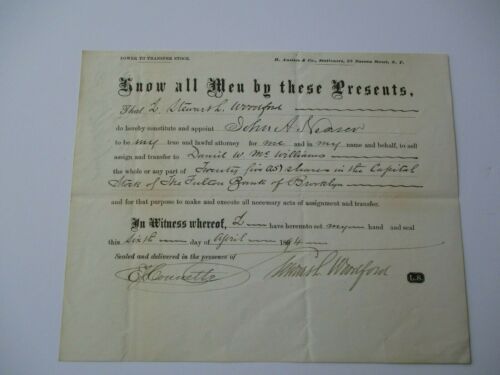 POWER TO TRANSFER STOCK.
Know all Men by these Presents,
That I, Stewart L. Woodford
do hereby constitute and appoint John A. Nexsen
to be my true and lawful attorney for me and in my name and behalf, to sell
assign and transfer to Daniel W. McWilliams
the whole or any part of Twenty five (25) shares in the Capital
Stock of The Fulton Bank of Brooklyn
and for that purpose to make and execute all necessary acts of assignment and transfer.
In Witness whereof, I have hereunto set my hand and seal
this Sixth day of April
Sealed and delivered in the presence of
Stewart L. Woodford
L.S.